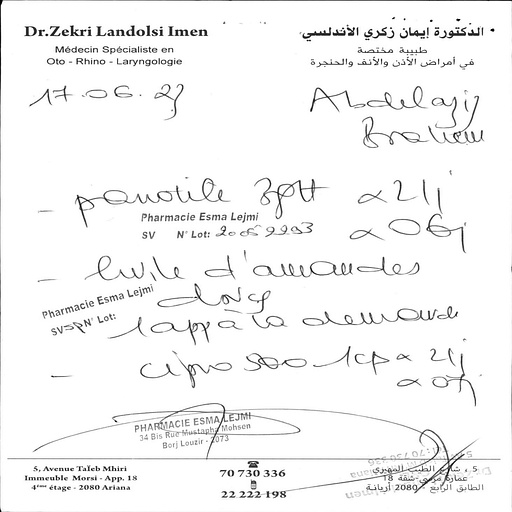 Dr.Zekri Landolsi Imen
Médecin Spécialiste en
Oto - Rhino - Laryngologie
الدكتورة إيمان زكري الأندلسي
طبيبة مختصة
في أمراض الأذن والأنف والحنجرة
17.06.23
Abdelaziz
Brahem
- panotile 3gtt x 2/j
x 06j
Pharmacie Esma Lejmi
SV N° Lot:
- huile d'amandes
douce
1 app à la demande
Pharmacie Esma Lejmi
N° Lot:
- cipro 500 1cp x 2/j
x 07j
PHARMACIE ESMA LEJMI
34 Bis Rue Mustapha Mohsen
Borj Louzir - 2073
5, Avenue TaÏeb Mhiri
Immeuble Morsi - App. 18
4ème étage - 2080 Ariana
70 730 336
22 222 198
5 ، شارع الطيب المهيري
عمارة مرسي-شقة 18
الطابق الرابع - 2080 أريانة